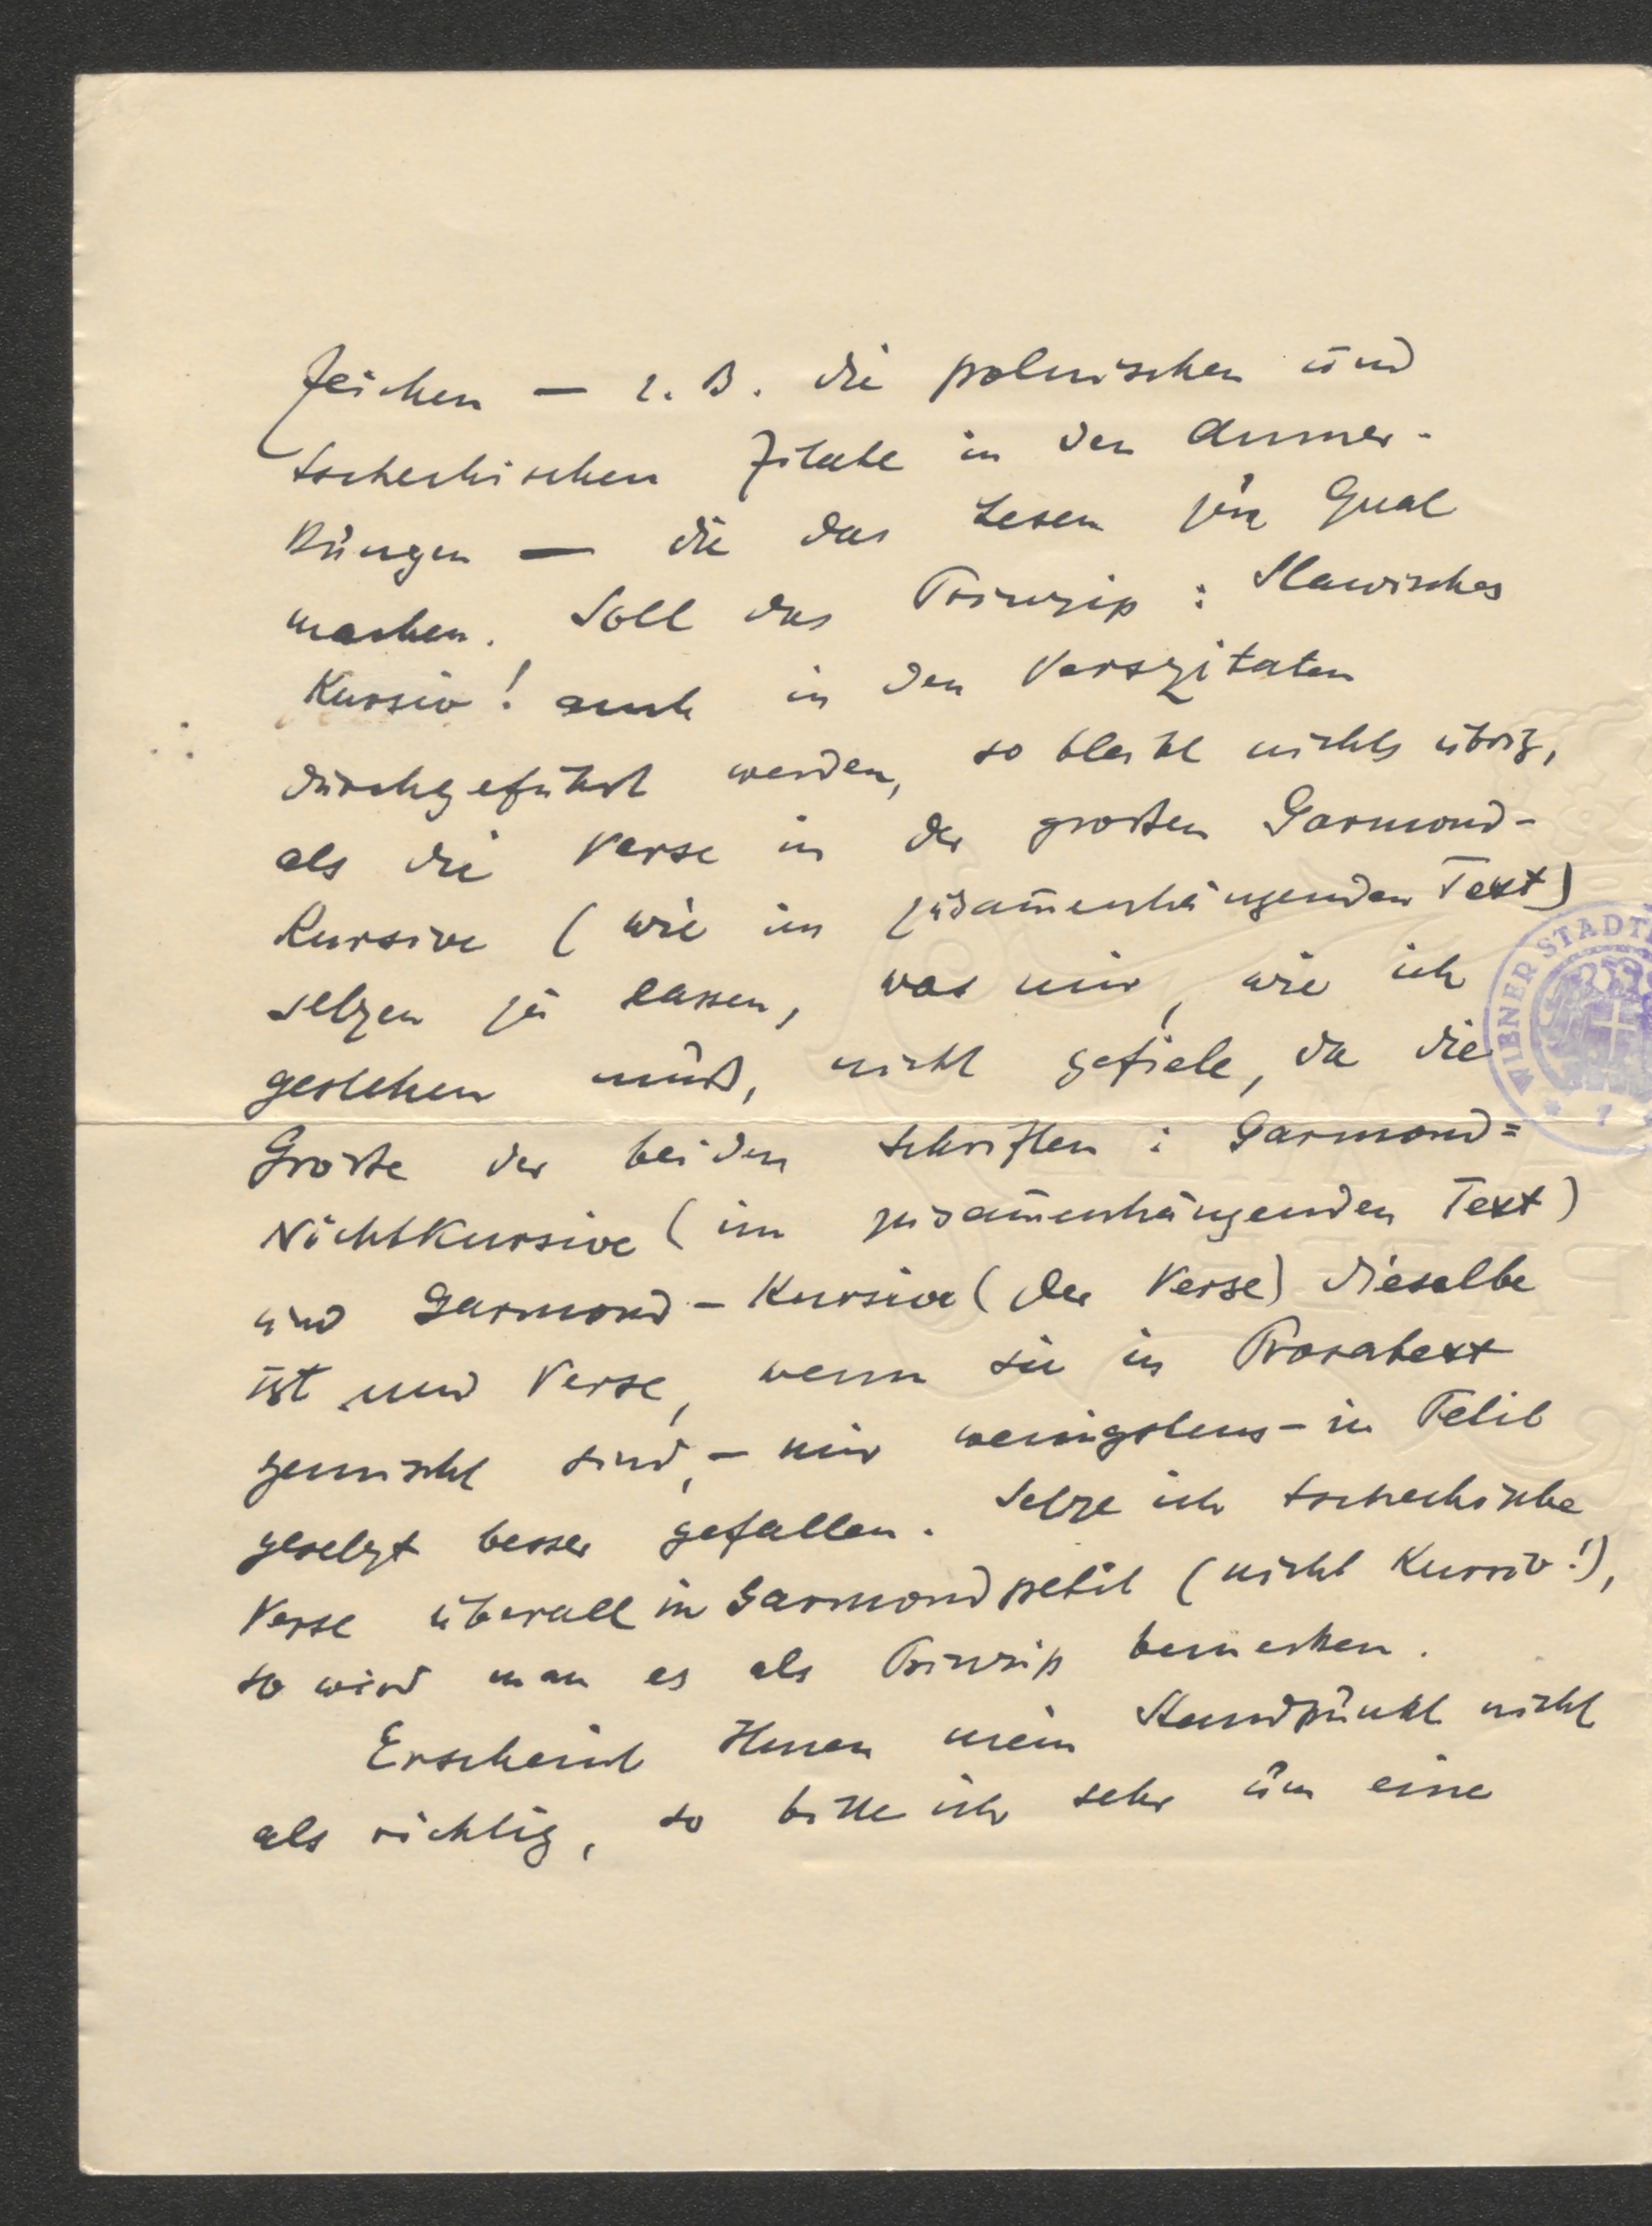 Zeichen — z. B. die polnischen und
tschechischen Zitate in den Anmer-
kungen — die das Lesen zur Qual
machen. Soll das Prinzip: Slawisches
Kursiv! auch in den Verszitaten
durchgeführt werden, so bleibt nichts übrig,
als die Verse in der großen Garmond-
Kursive (wie im zusam̄enhängenden Text)
setzen zu lassen, was mir, wie ich
gestehen muß, nicht gefiele, da die
Größe der beiden Schriften: Garmond=
Nichtkursive (im zusam̄enhängenden Text)
und Garmond-Kursive (der Verse) dieselbe
ist und Verse, wenn sie in Prosatext
gemischt sind, - mir wenigstens - in Petit
gesetzt besser gefallen. Setze ich tschechische
Verse überall in Garmondpetit (nicht Kursiv!),
so wird man es als Prinzip bemerken.
Erscheint Ihnen mein Standpunkt nicht
als richtig, so bitte ich sehr um eine
WIENER STADT